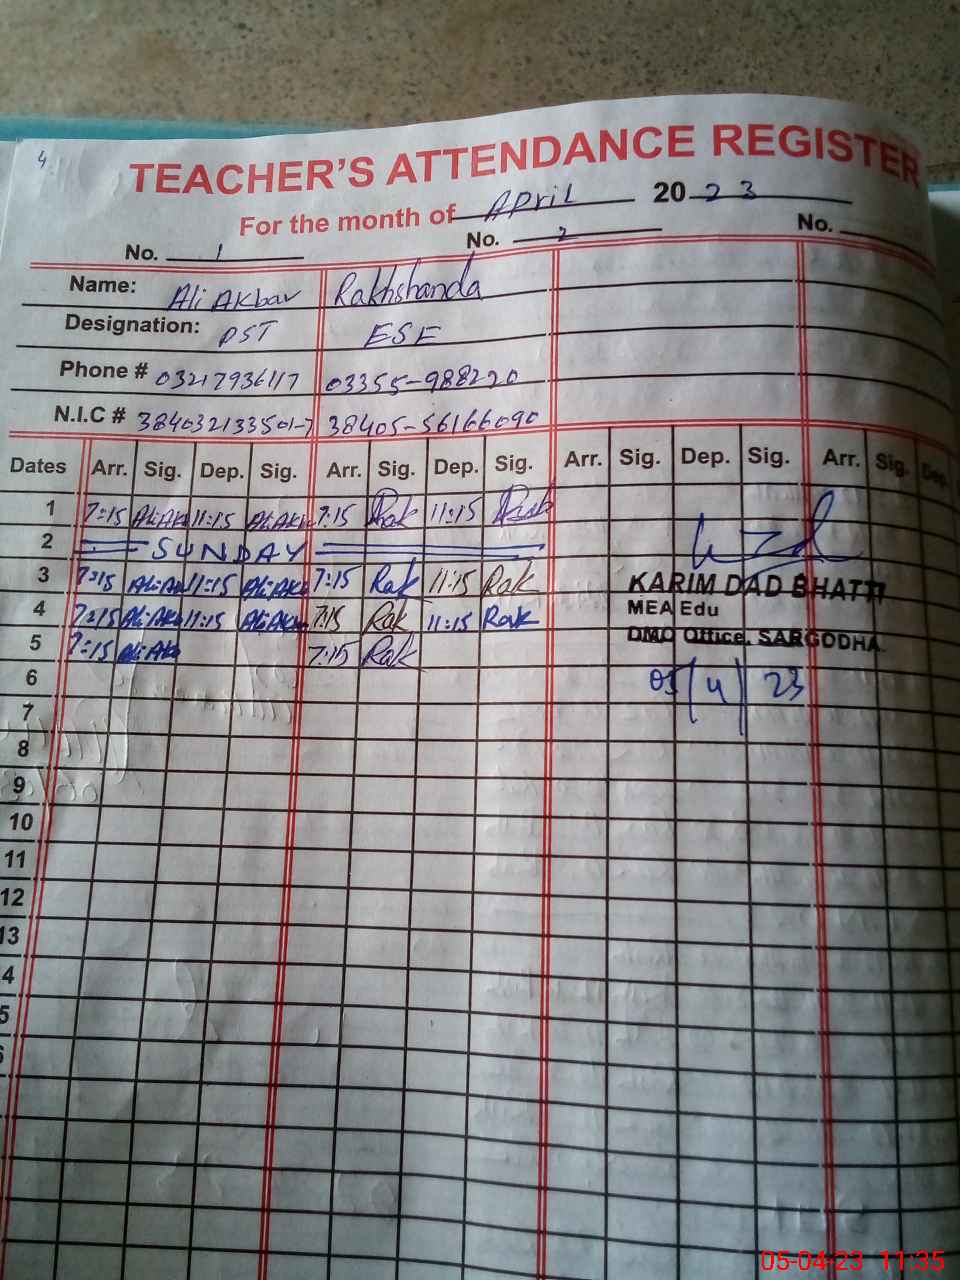 4
TEACHER'S ATTENDANCE REGISTER
For the month of April 2023
No. 1 No. 2 No.
Name: Ali Akbar Rakhshanda
Designation: PST ESE
Phone # 03217936117 03355-988220
N.I.C # 384032133501-7 38405-56166090
Dates Arr. Sig. Dep. Sig. Arr. Sig. Dep. Sig. Arr. Sig. Dep. Sig. Arr. Sig. Dep.
1 7:15 Ali Ak 11:15 Ali Ak 7:15 Rak 11:15 Rak
2 SUNDAY
3 7:15 Ali Ak 11:15 Ali Ak 7:15 Rak 11:15 Rak
KARIM DAD BHATTI
4 7:15 Ali Ak 11:15 Ali Ak 7:15 Rak 11:15 Rak
MEA Edu
5 7:15 Ali Ak 7:15 Rak
DMO Office, SARGODHA
6 05/4/23
7
8
9
10
11
12
13
4
5
05-04-23 11:35